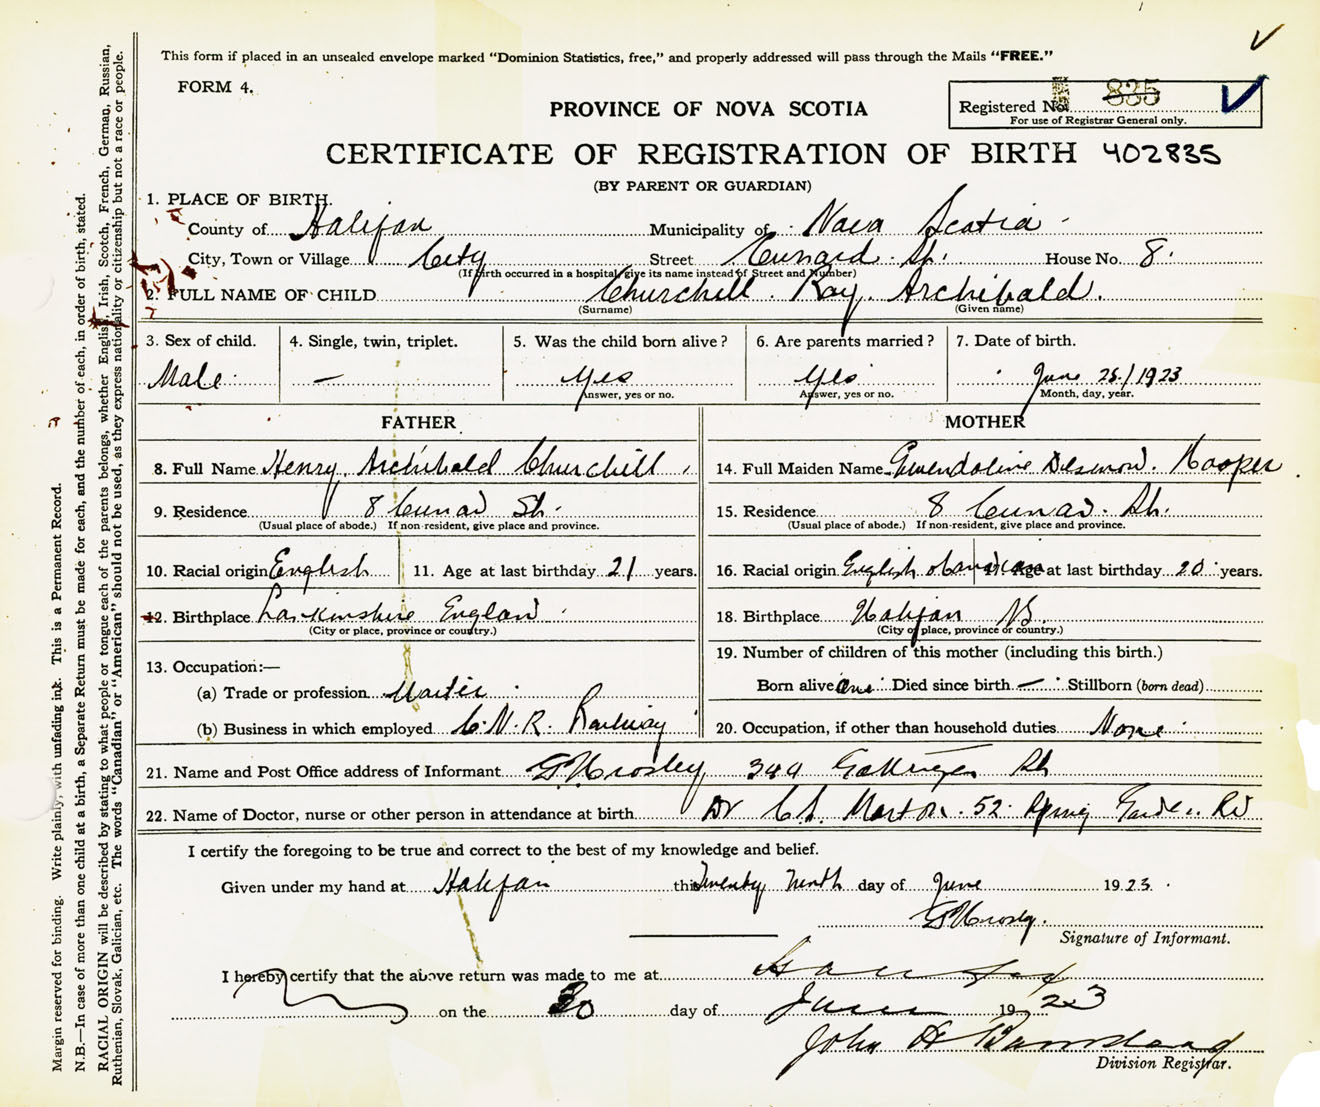 This form if placed in an unsealed envelope marked "Dominion Statistics, free," and properly addressed will pass through the Mails "FREE."
FORM 4.
Registered No. 835
For use of Registrar General only.
PROVINCE OF NOVA SCOTIA
CERTIFICATE OF REGISTRATION OF BIRTH 402835
(BY PARENT OR GUARDIAN)
1. PLACE OF BIRTH.
County of Halifax Municipality of Nova Scotia
City, Town or Village City Street Cunard St. House No. 8.
(If birth occurred in a hospital give its name instead of Street and Number)
2. FULL NAME OF CHILD Churchill. Ray. Archibald.
(Surname) (Given name)
3. Sex of child. 4. Single, twin, triplet. 5. Was the child born alive? 6. Are parents married? 7. Date of birth.
Male — Yes Yes June 25/1923
Answer, yes or no. Answer, yes or no. Month, day, year.
FATHER MOTHER
8. Full Name Henry Archibald Churchill 14. Full Maiden Name Gwendoline Hooper
9. Residence 8 Cunard St. 15. Residence 8 Cunard. St.
(Usual place of abode.) If non-resident, give place and province. (Usual place of abode.) If non-resident, give place and province.
10. Racial origin English 11. Age at last birthday 21 years. 16. Racial origin English 17. Age at last birthday 20 years.
12. Birthplace England 18. Birthplace Halifax
(City or place, province or country.) (City or place, province or country.)
13. Occupation:— 19. Number of children of this mother (including this birth.)
(a) Trade or profession Waiter Born alive one Died since birth — Stillborn (born dead)
(b) Business in which employed C.N.R. Railway 20. Occupation, if other than household duties None
21. Name and Post Office address of Informant G Crosley Gottingen St
22. Name of Doctor, nurse or other person in attendance at birth Dr C.S. Morton. 52. Spring Garden Rd
I certify the foregoing to be true and correct to the best of my knowledge and belief.
Given under my hand at Halifax this Twenty Ninth day of June 1923.
Signature of Informant.
I hereby certify that the above return was made to me at Halifax
on the 30 day of June 1923
John A
Division Registrar.
Margin reserved for binding. Write plainly, with unfading ink. This is a Permanent Record.
N.B.—In case of more than one child at a birth, a Separate Return must be made for each, and the number of each, in order of birth, stated.
RACIAL ORIGIN will be described by stating to what people or tongue each of the parents belongs, whether English, Irish, Scotch, French, German, Russian,
Ruthenian, Slovak, Galician, etc. The words "Canadian" or "American" should not be used, as they express nationality or citizenship but not a race or people.